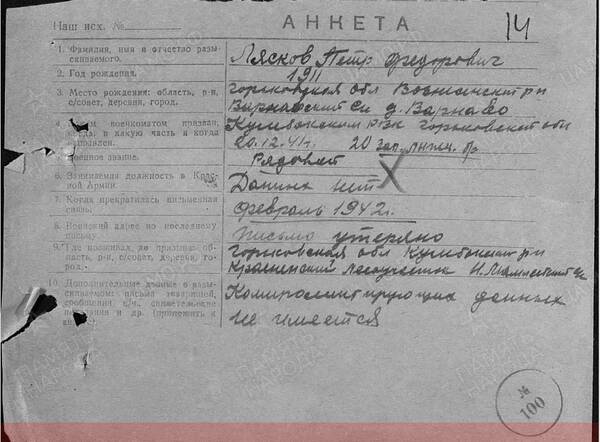 Наш исх. №
АНКЕТА
14
1. Фамилия, имя и отчество разыскиваемого.
Лясков Петр Федорович
2. Год рождения.
1911
3. Место рождения: область, р-н, с/совет, деревня, город.
Горьковская обл Вознесенский рн
Варнаевский с/с д. Варнаево
4. военкоматом призван, когда, в какую часть и когда
Кулебакским РВК Горьковской обл
20.12.41г. 20 зап. лыжн. бр
5. Военное звание.
Рядовой
6. Занимаемая должность в Красной Армии.
Данных нет
7. Когда прекратилась письменная связь.
февраль 1942г.
8. Воинский адрес по последнему письму.
письмо утеряно
9. Где проживал до призыва: область, р-н, с/совет, деревня, город.
Горьковская обл Кулебакский рн
лесоучасток
10. Дополнительные данные о разыскиваемом: письма товарищей, сообщения в/ч.
и др. (приложить к
Компрометирующих данных
не имеется
№
100
ПАМЯТЬ НАРОДА